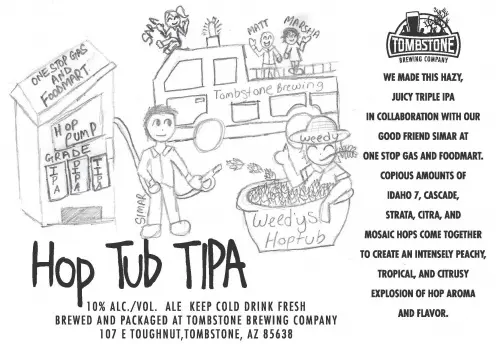 ONE STOP GAS
AND
FOODMART
HOP
PUMP
GRADE
IPA
DIPA
TIPA
SARA
MATT
MARSHA
Tombstone Brewing
SIMAR
weedy
Weedy's
Hoptub
Hop Tub TIPA
10% ALC./VOL. ALE KEEP COLD DRINK FRESH
BREWED AND PACKAGED AT TOMBSTONE BREWING COMPANY
107 E TOUGHNUT,TOMBSTONE, AZ 85638
TOMBSTONE
BREWING COMPANY
WE MADE THIS HAZY,
JUICY TRIPLE IPA
IN COLLABORATION WITH OUR
GOOD FRIEND SIMAR AT
ONE STOP GAS AND FOODMART.
COPIOUS AMOUNTS OF
IDAHO 7, CASCADE,
STRATA, CITRA, AND
MOSAIC HOPS COME TOGETHER
TO CREATE AN INTENSELY PEACHY,
TROPICAL, AND CITRUSY
EXPLOSION OF HOP AROMA
AND FLAVOR.